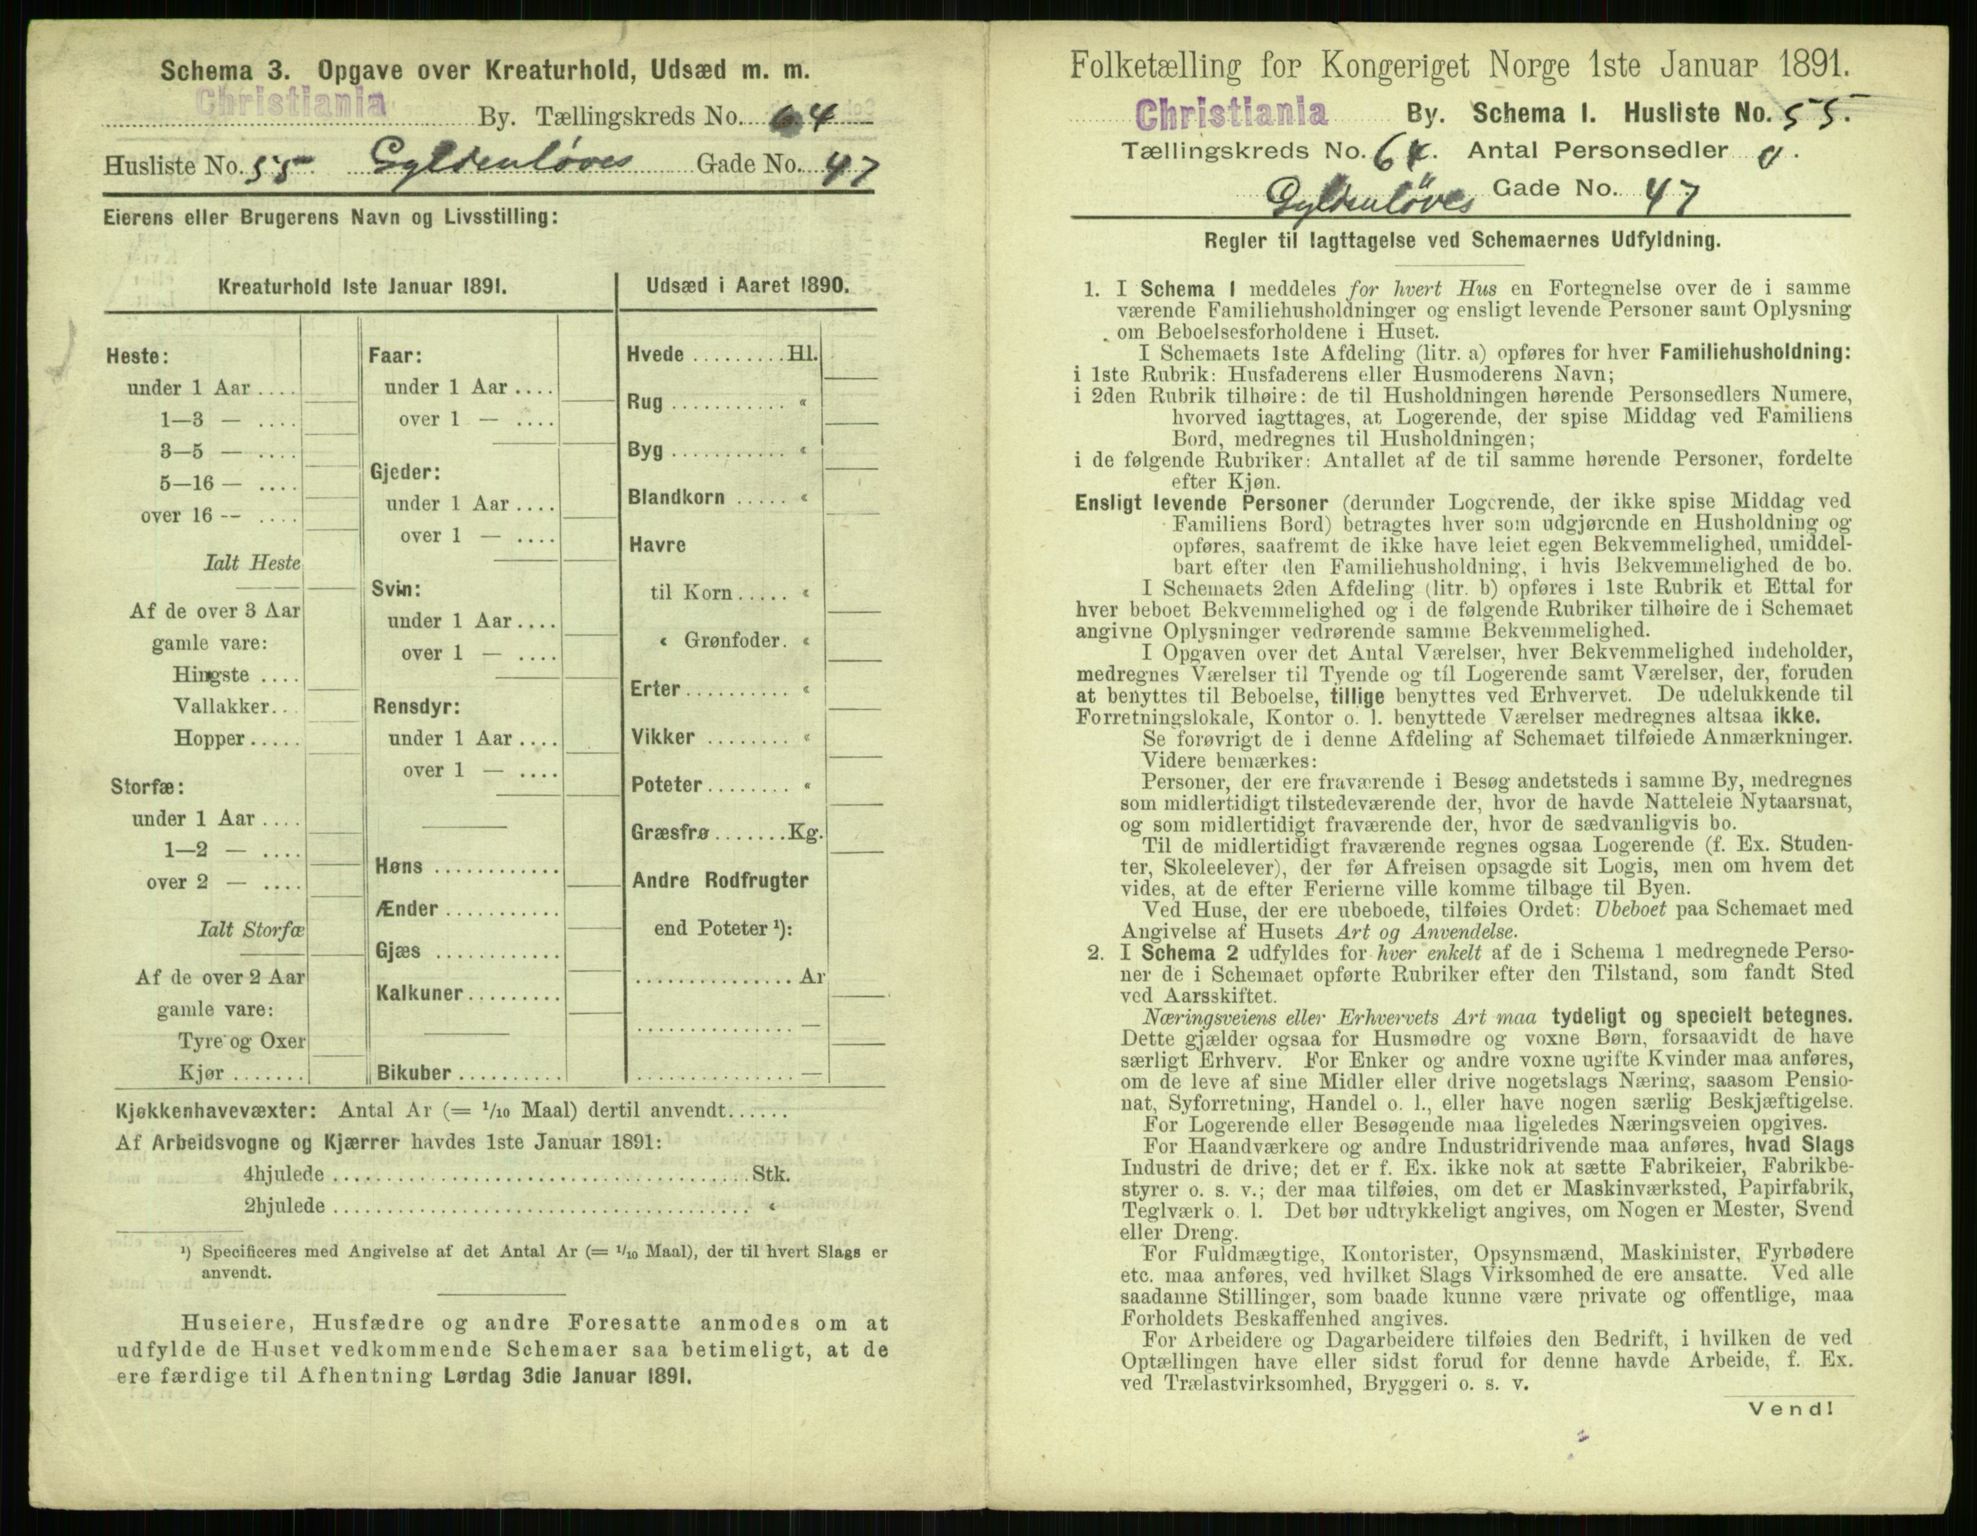 Schema 3. Opgave over Kreaturhold, Udsæd m. m.
Christiania By. Tællingskreds No. 64
Husliste No. 55. Gyldenløves Gade No. 47
Eierens eller Brugerens Navn og Livsstilling:
Kreaturhold 1ste Januar 1891.
Heste:
under 1 Aar ....
1—3 — ....
3—5 — ....
5—16 — ....
over 16 -- ....
Ialt Heste
Af de over 3 Aar
gamle vare:
Hingste ....
Vallakker...
Hopper.....
Storfæ:
under 1 Aar ....
1—2 — ....
over 2 — ....
Ialt Storfæ
Af de over 2 Aar
gamle vare:
Tyre og Oxer
Kjør .......
Faar:
under 1 Aar ....
over 1 — ....
Gjeder:
under 1 Aar ....
over 1 — ....
Svin:
under 1 Aar ....
over 1 — ....
Rensdyr:
under 1 Aar ....
over 1 — ....
Høns ............
Ænder ...........
Gjæs ............
Kalkuner.........
Bikuber ..........
Udsæd i Aaret 1890.
Hvede .........Hl.
Rug ........... «
Byg ........... «
Blandkorn ..... «
Havre
til Korn..... «
« Grønfoder. «
Erter .......... «
Vikker ........ «
Poteter ........ «
Græsfrø .......Kg.
Andre Rodfrugter
end Poteter ¹):
...............Ar
............... —
............... —
Kjøkkenhavevæxter: Antal Ar (= 1/10 Maal) dertil anvendt......
Af Arbeidsvogne og Kjærrer havdes 1ste Januar 1891:
4hjulede .....................................Stk.
2hjulede ..................................... «
¹) Specificeres med Angivelse af det Antal Ar (= 1/10 Maal), der til hvert Slags er
anvendt.
Huseiere, Husfædre og andre Foresatte anmodes om at
udfylde de Huset vedkommende Schemaer saa betimeligt, at de
ere færdige til Afhentning Lørdag 3die Januar 1891.
Folketælling for Kongeriget Norge 1ste Januar 1891.
Christiania By. Schema I. Husliste No. 55.
Tællingskreds No. 64. Antal Personsedler 0.
Gyldenløves Gade No. 47
Regler til Iagttagelse ved Schemaernes Udfyldning.
1. I Schema I meddeles for hvert Hus en Fortegnelse over de i samme
værende Familiehusholdninger og ensligt levende Personer samt Oplysning
om Beboelsesforholdene i Huset.
I Schemaets 1ste Afdeling (litr. a) opføres for hver Familiehusholdning:
i 1ste Rubrik: Husfaderens eller Husmoderens Navn;
i 2den Rubrik tilhøire: de til Husholdningen hørende Personsedlers Numere,
hvorved iagttages, at Logerende, der spise Middag ved Familiens
Bord, medregnes til Husholdningen;
i de følgende Rubriker: Antallet af de til samme hørende Personer, fordelte
efter Kjøn.
Ensligt levende Personer (derunder Logerende, der ikke spise Middag ved
Familiens Bord) betragtes hver som udgjørende en Husholdning og
opføres, saafremt de ikke have leiet egen Bekvemmelighed, umiddel-
bart efter den Familiehusholdning, i hvis Bekvemmelighed de bo.
I Schemaets 2den Afdeling (litr. b) opføres i 1ste Rubrik et Ettal for
hver beboet Bekvemmelighed og i de følgende Rubriker tilhøire de i Schemaet
angivne Oplysninger vedrørende samme Bekvemmelighed.
I Opgaven over det Antal Værelser, hver Bekvemmelighed indeholder,
medregnes Værelser til Tyende og til Logerende samt Værelser, der, foruden
at benyttes til Beboelse, tillige benyttes ved Erhvervet. De udelukkende til
Forretningslokale, Kontor o. l. benyttede Værelser medregnes altsaa ikke.
Se forøvrigt de i denne Afdeling af Schemaet tilføiede Anmærkninger.
Videre bemærkes:
Personer, der ere fraværende i Besøg andetsteds i samme By, medregnes
som midlertidigt tilstedeværende der, hvor de havde Natteleie Nytaarsnat,
og som midlertidigt fraværende der, hvor de sædvanligvis bo.
Til de midlertidigt fraværende regnes ogsaa Logerende (f. Ex. Studen-
ter, Skoleelever), der før Afreisen opsagde sit Logis, men om hvem det
vides, at de efter Ferierne ville komme tilbage til Byen.
Ved Huse, der ere ubeboede, tilføies Ordet: Ubeboet paa Schemaet med
Angivelse af Husets Art og Anvendelse.
2. I Schema 2 udfyldes for hver enkelt af de i Schema 1 medregnede Perso-
ner de i Schemaet opførte Rubriker efter den Tilstand, som fandt Sted
ved Aarsskiftet.
Næringsveiens eller Erhvervets Art maa tydeligt og specielt betegnes.
Dette gjælder ogsaa for Husmødre og voxne Børn, forsaavidt de have
særligt Erhverv. For Enker og andre voxne ugifte Kvinder maa anføres,
om de leve af sine Midler eller drive nogetslags Næring, saasom Pensio-
nat, Syforretning, Handel o. l., eller have nogen særlig Beskjæftigelse.
For Logerende eller Besøgende maa ligeledes Næringsveien opgives.
For Haandværkere og andre Industridrivende maa anføres, hvad Slags
Industri de drive; det er f. Ex. ikke nok at sætte Fabrikeier, Fabrikbe-
styrer o. s. v.; der maa tilføies, om det er Maskinværksted, Papirfabrik,
Teglværk o. l. Det bør udtrykkeligt angives, om Nogen er Mester, Svend
eller Dreng.
For Fuldmægtige, Kontorister, Opsynsmænd, Maskinister, Fyrbødere
etc. maa anføres, ved hvilket Slags Virksomhed de ere ansatte. Ved alle
saadanne Stillinger, som baade kunne være private og offentlige, maa
Forholdets Beskaffenhed angives.
For Arbeidere og Dagarbeidere tilføies den Bedrift, i hvilken de ved
Optællingen have eller sidst forud for denne havde Arbeide, f. Ex.
ved Trælastvirksomhed, Bryggeri o. s. v.
Vend!